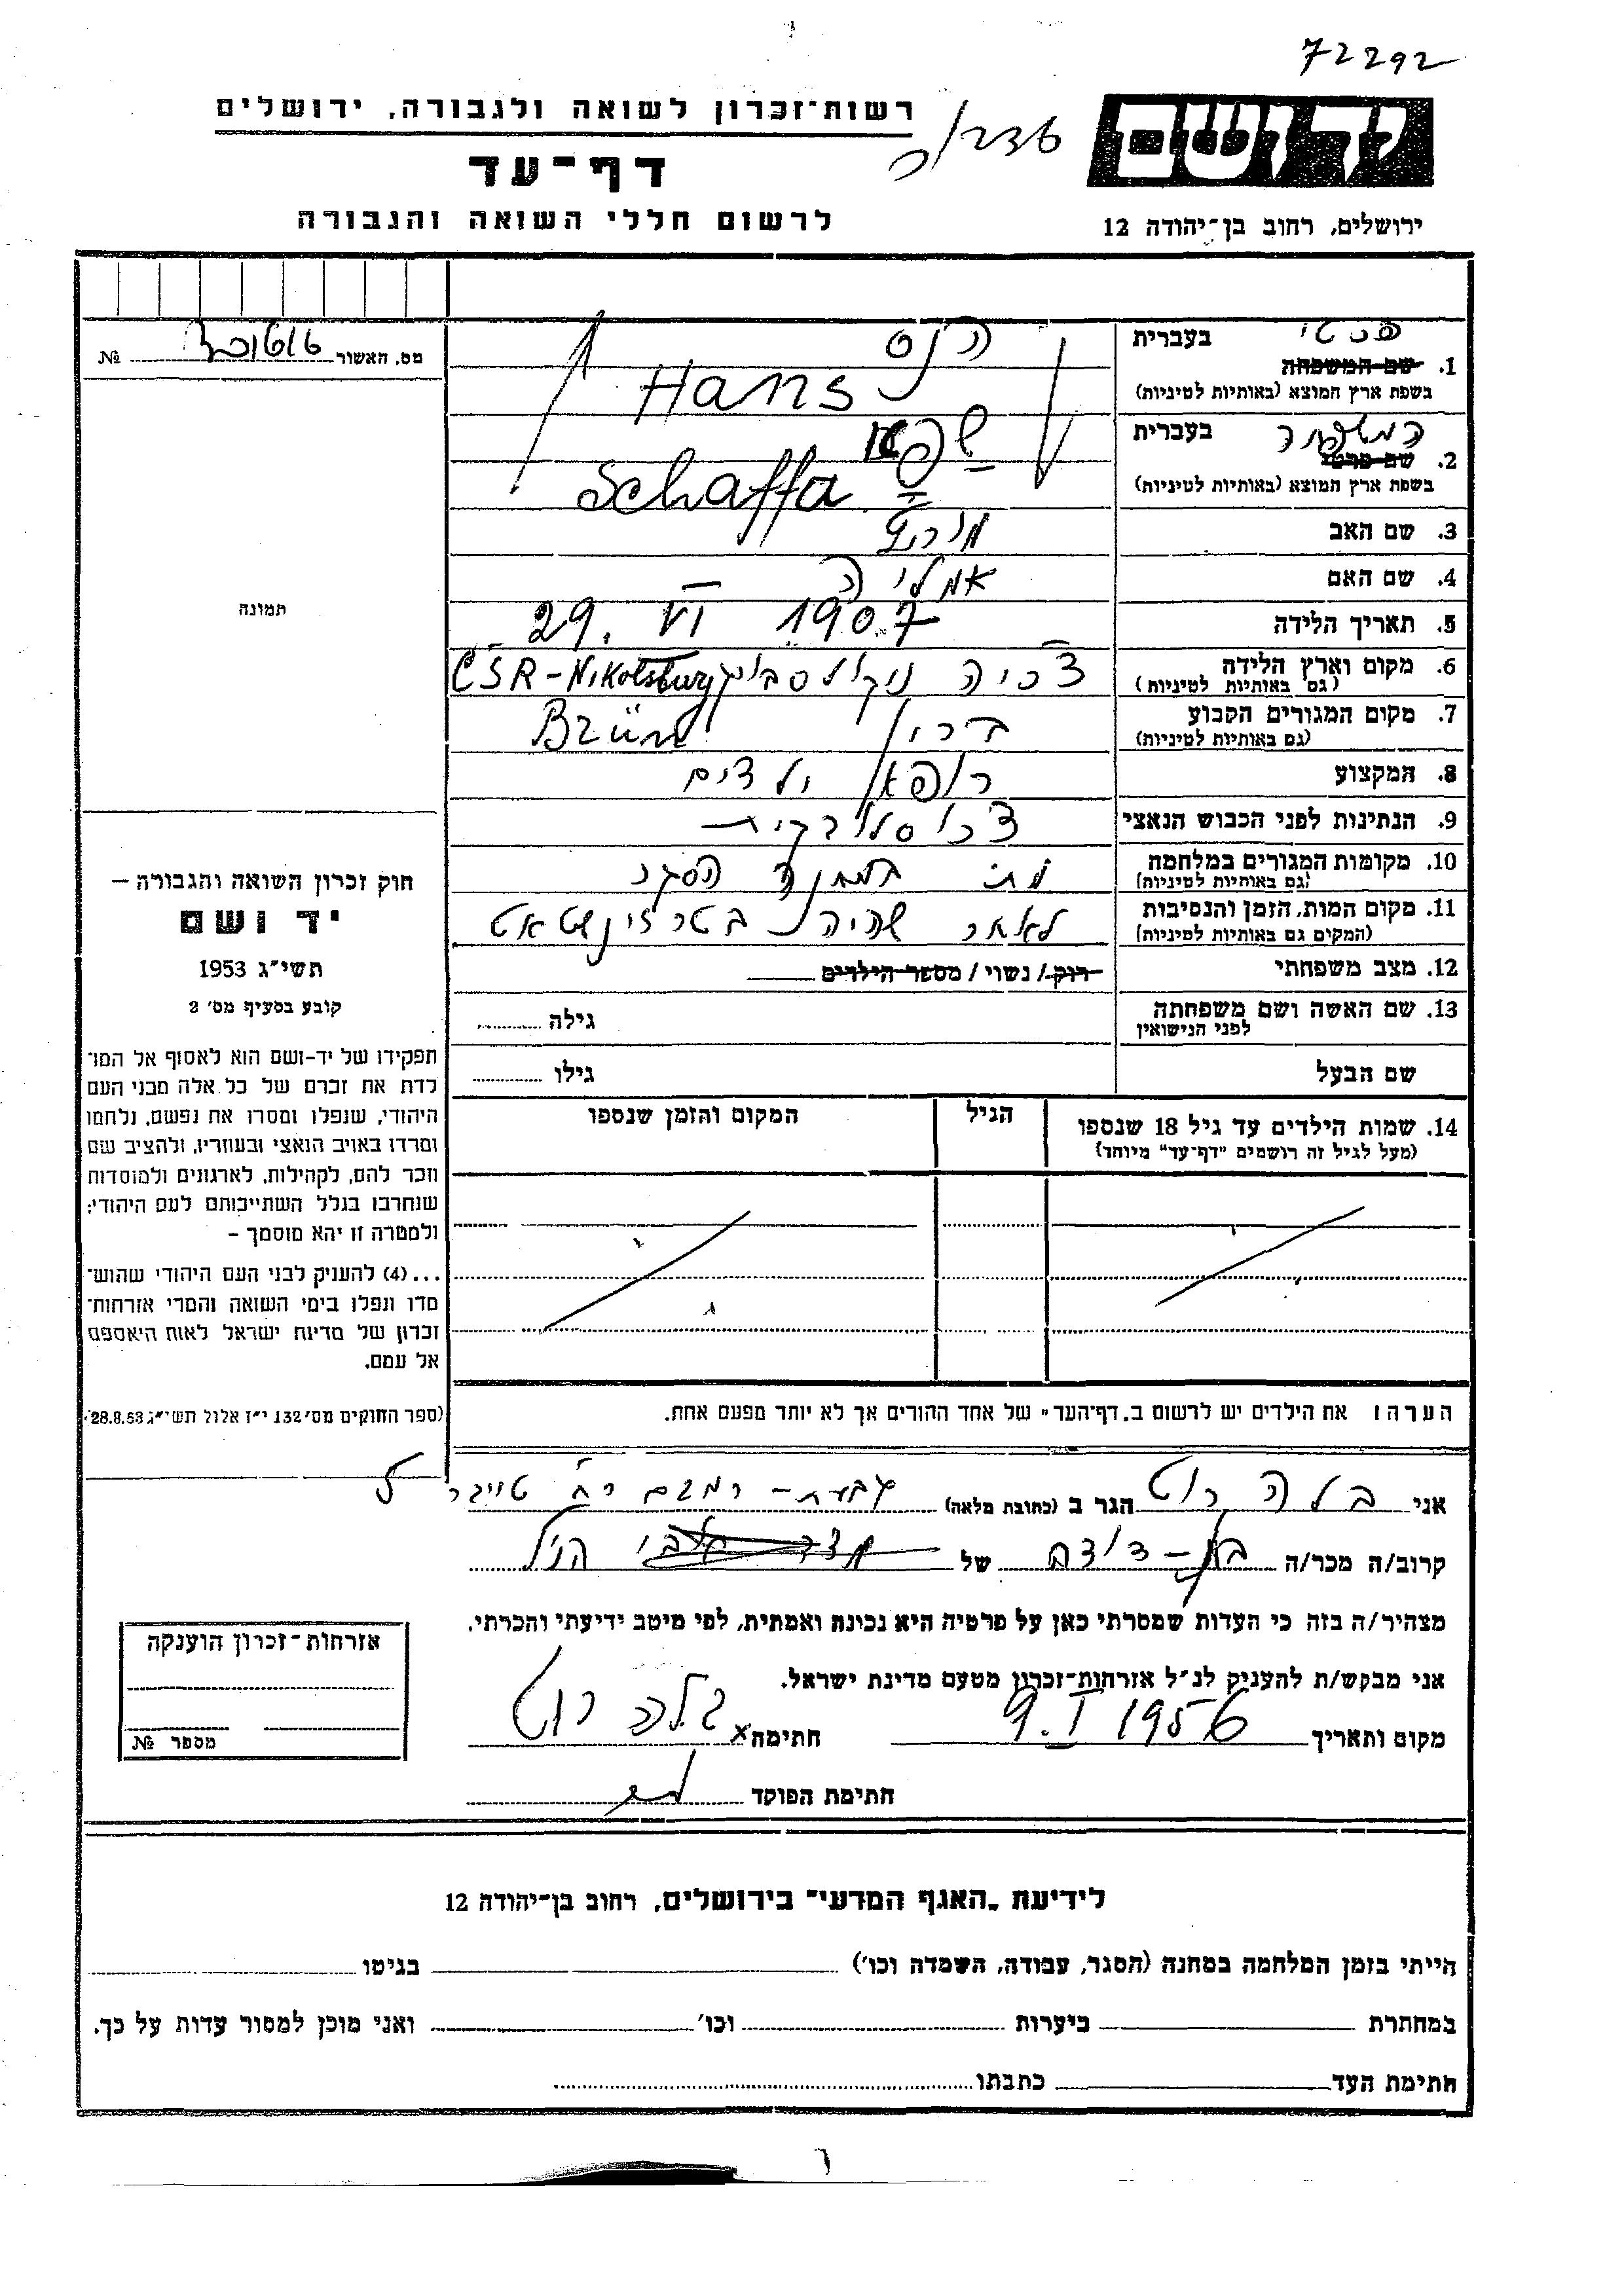 72292
רשות־זכרון לשואה ולגבורה, ירושלים
יד ושם
דף־עד
לרשום חללי השואה והגבורה
ירושלים, רחוב בן־יהודה 12
מס. האשור № 
פרטי
1. שם המשפחה בעברית הנס
בשפת ארץ המוצא (באותיות לטיניות) Hans
המשפחה
2. שם פרטי בעברית
בשפת ארץ המוצא (באותיות לטיניות) Schaffa
3. שם האב מוריץ
4. שם האם אמליה
תמונה
5. תאריך הלידה 29. VI 1907
6. מקום וארץ הלידה (גם באותיות לטיניות) צכיה ניקולסבורג ČSR-Nikolsburg
7. מקום המגורים הקבוע (גם באותיות לטיניות) ברין Brünn
8. המקצוע רופא ילדים
9. הנתינות לפני הכבוש הנאצי צכוסלובקית
10. מקומות המגורים במלחמה (גם באותיות לטיניות) מת במחנה הסגר
11. מקום המות, הזמן והנסיבות (המקום גם באותיות לטיניות) לאחר שהיה בטרזינשטאט
12. מצב משפחתי רוק / נשוי / מספר הילדים
13. שם האשה ושם משפחתה לפני הנישואין גילה
שם הבעל גילו
14. שמות הילדים עד גיל 18 שנספו הגיל המקום והזמן שנספו
(מעל לגיל זה רושמים "דף־עד" מיוחד)
הערה: את הילדים יש לרשום ב„דף־העד" של אחד ההורים אך לא יותר מפעם אחת.
חוק זכרון השואה והגבורה –
יד ושם
תשי"ג 1953
קובע בסעיף מס' 2
תפקידו של יד-ושם הוא לאסוף אל המו־
לדת את זכרם של כל אלה מבני העם
היהודי, שנפלו ומסרו את נפשם, נלחמו
ומרדו באויב הנאצי ובעוזריו, ולהציב שם
וזכר להם, לקהילות, לארגונים ולמוסדות
שנחרבו בגלל השתייכותם לעם היהודי;
ולמטרה זו יהא מוסמך –
...(4) להעניק לבני העם היהודי שהוש־
מדו ונפלו בימי השואה והמרי אזרחות־
זכרון של מדינת ישראל לאות היאספם
אל עמם.
(ספר החוקים מס' 132 י"ז אלול תשי"ג 28.8.53)
אני בלה רוט הגר ב (כתובת מלאה) גבעת-רמבם רח'
קרוב/ה מכר/ה בת-דודם של הנ"ל
מצהיר/ה בזה כי העדות שמסרתי כאן על פרטיה היא נכונה ואמתית, לפי מיטב ידיעתי והכרתי.
אני מבקש/ת להעניק לנ"ל אזרחות־זכרון מטעם מדינת ישראל.
מקום ותאריך 9. I 1956 חתימה x בלה רוט
חתימת הפוקד
אזרחות־זכרון הוענקה
מספר №
לידיעת „האגף המדעי" בירושלים, רחוב בן־יהודה 12
הייתי בזמן המלחמה במחנה (הסגר, עבודה, השמדה וכו') בגיטו
במחתרת ביערות וכו' ואני מוכן למסור עדות על כך.
חתימת העד כתבתו